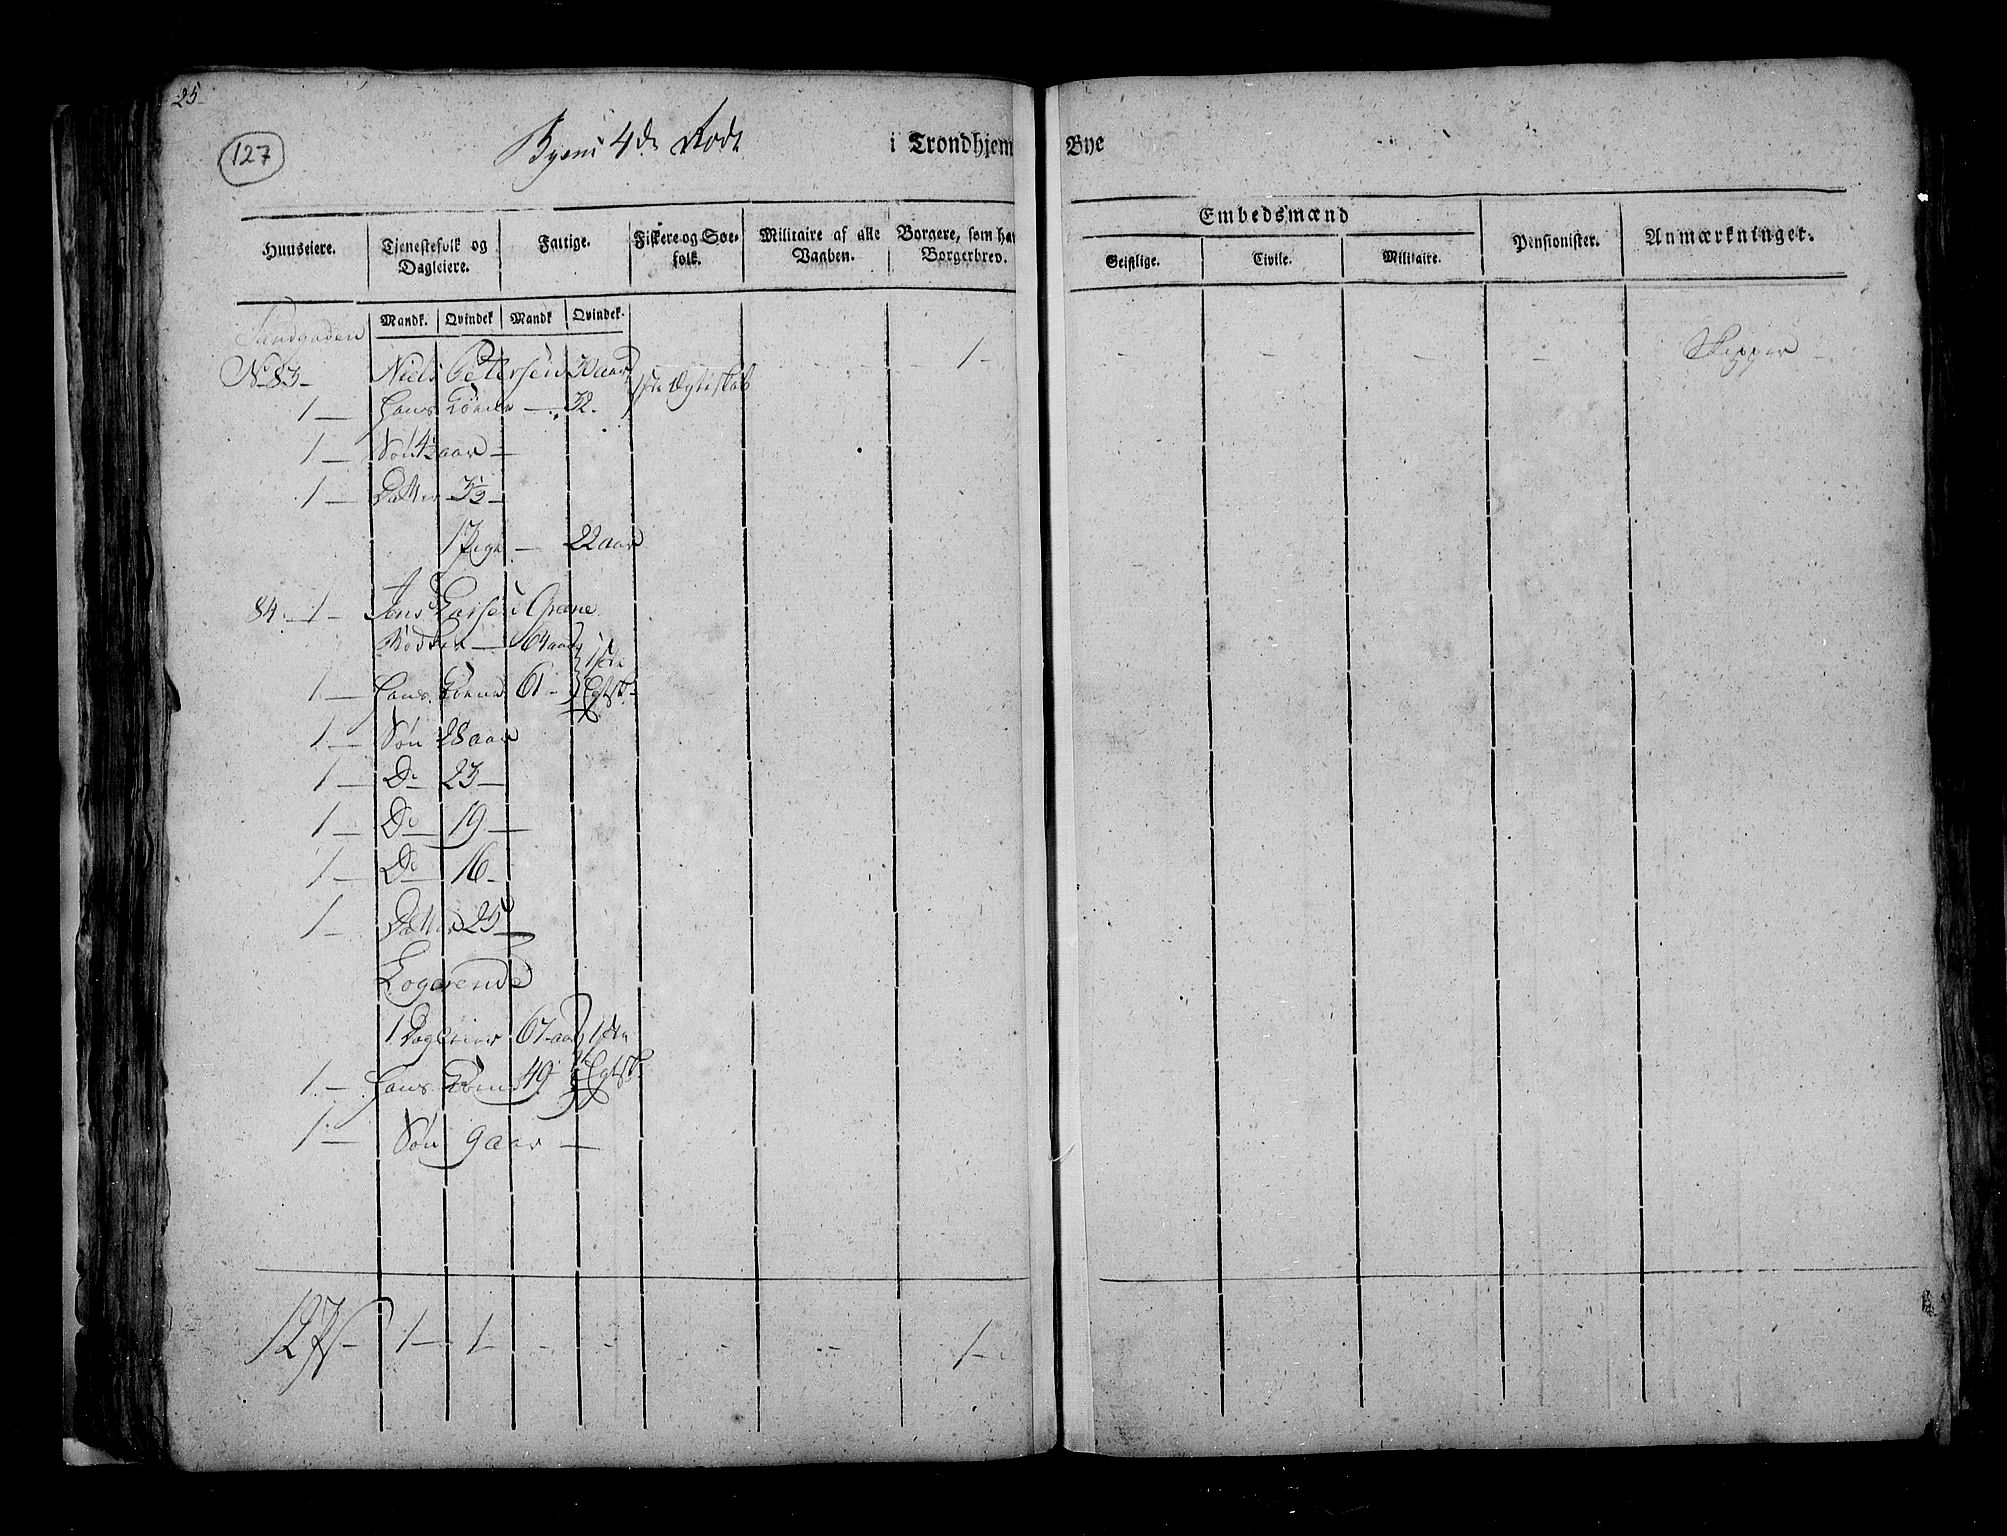 25
127
Byens 4de Rode i Trondhjem Bye
Huuseiere. Tjenestefolk og Dagleiere. Fattige. Fiskere og Søefolk. Militaire af alle Vaaben. Borgere, som har Borgerbrev. Embedsmænd Pensionister. Anmærkninger.
Geistlige. Civile. Militaire.
Mandk. Qvindek Mandk Qvindek.
Sandgaden
No 83 – Niels Petersen 30 aar 1ste Ægteskab 1 – Skipper –
1 – Hans Kone – 32.
1 – Søn 4½ aar –
1 – Datter 3½ –
1 Pige – 22 aar
84. – 1 – Jens Larsen Græne
Bødker – 64 aar } 1ste
1 – Hans Kone 61 – } Egtsk.
1 – Søn 28 aar
1 – Do 23 –
1 – Do – 19 –
1 – Do 16 –
1 – Datter 25 –
Logerende
1 Dagleier 67 aar } 1ste
1 – Hans Kone 49 } Egtsk
1 – Søn 9 aar –
12 – 1 – 1 – – – – – 1 –